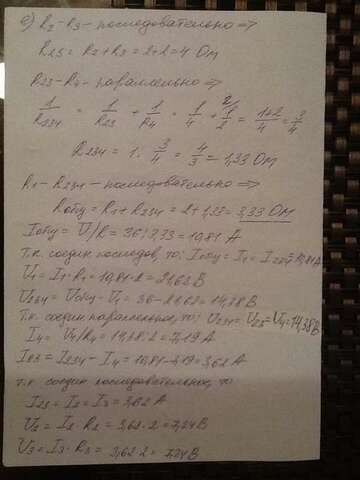 е) R2-R3-последовательно =>
R23 = R2+R3 = 2+2 = 4 Ом
R23-R4-параллельно =>
1/R234 = 1/R23 + 1/R4 = 1/4 + 2/1/2 = 1+2/4 = 3/4
R234 = 1 · 3/4 = 4/3 = 1,33 Ом
R1-R234-последовательно =>
Rобщ = R1+R234 = 2+1,33 = 3,33 Ом
Iобщ = U/R = 36:3,33 = 10,81 А
т.к. соедин последов, то: Iобщ = I1 = I234 = 10,81А
U1 = I1·R1 = 10,81·2 = 21,62 В
U234 = Uобщ - U1 = 36-21,62 = 14,38 В
Т.к. соедин параллельное, то: U234 = U23 = U4 = 14,38В
I4 = U4/R4 = 14,38:2 = 7,19 А
I23 = I234 - I4 = 10,81-7,19 = 3,62 А
т.к. соедин последовательное, то
I23 = I2 = I3 = 3,62 А
U2 = I2· R2 = 3,62·2 = 7,24 В
U3 = I3· R3 = 3,62·2 = 7,24 В